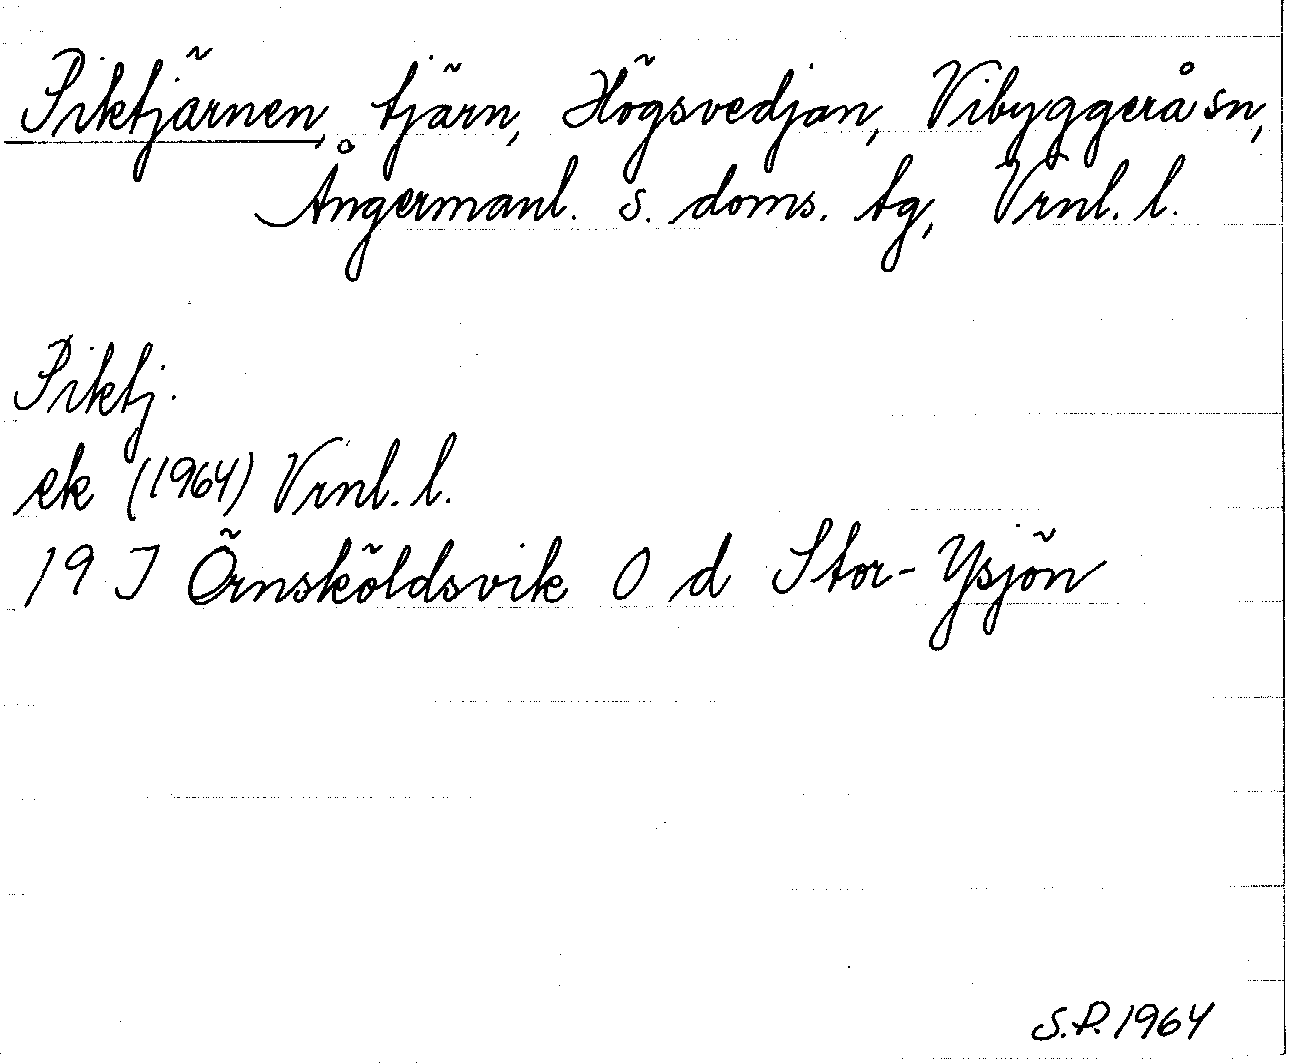 Piktjärnen, tjärn, Högsvedjan, Vibyggerå sn,
Ångermanl. s. doms. tg, Vrnl. l.
Piktj.
ek (1964) Vrnl. l.
19 I Örnsköldsvik O d Stor-Ysjön
S.P. 1964